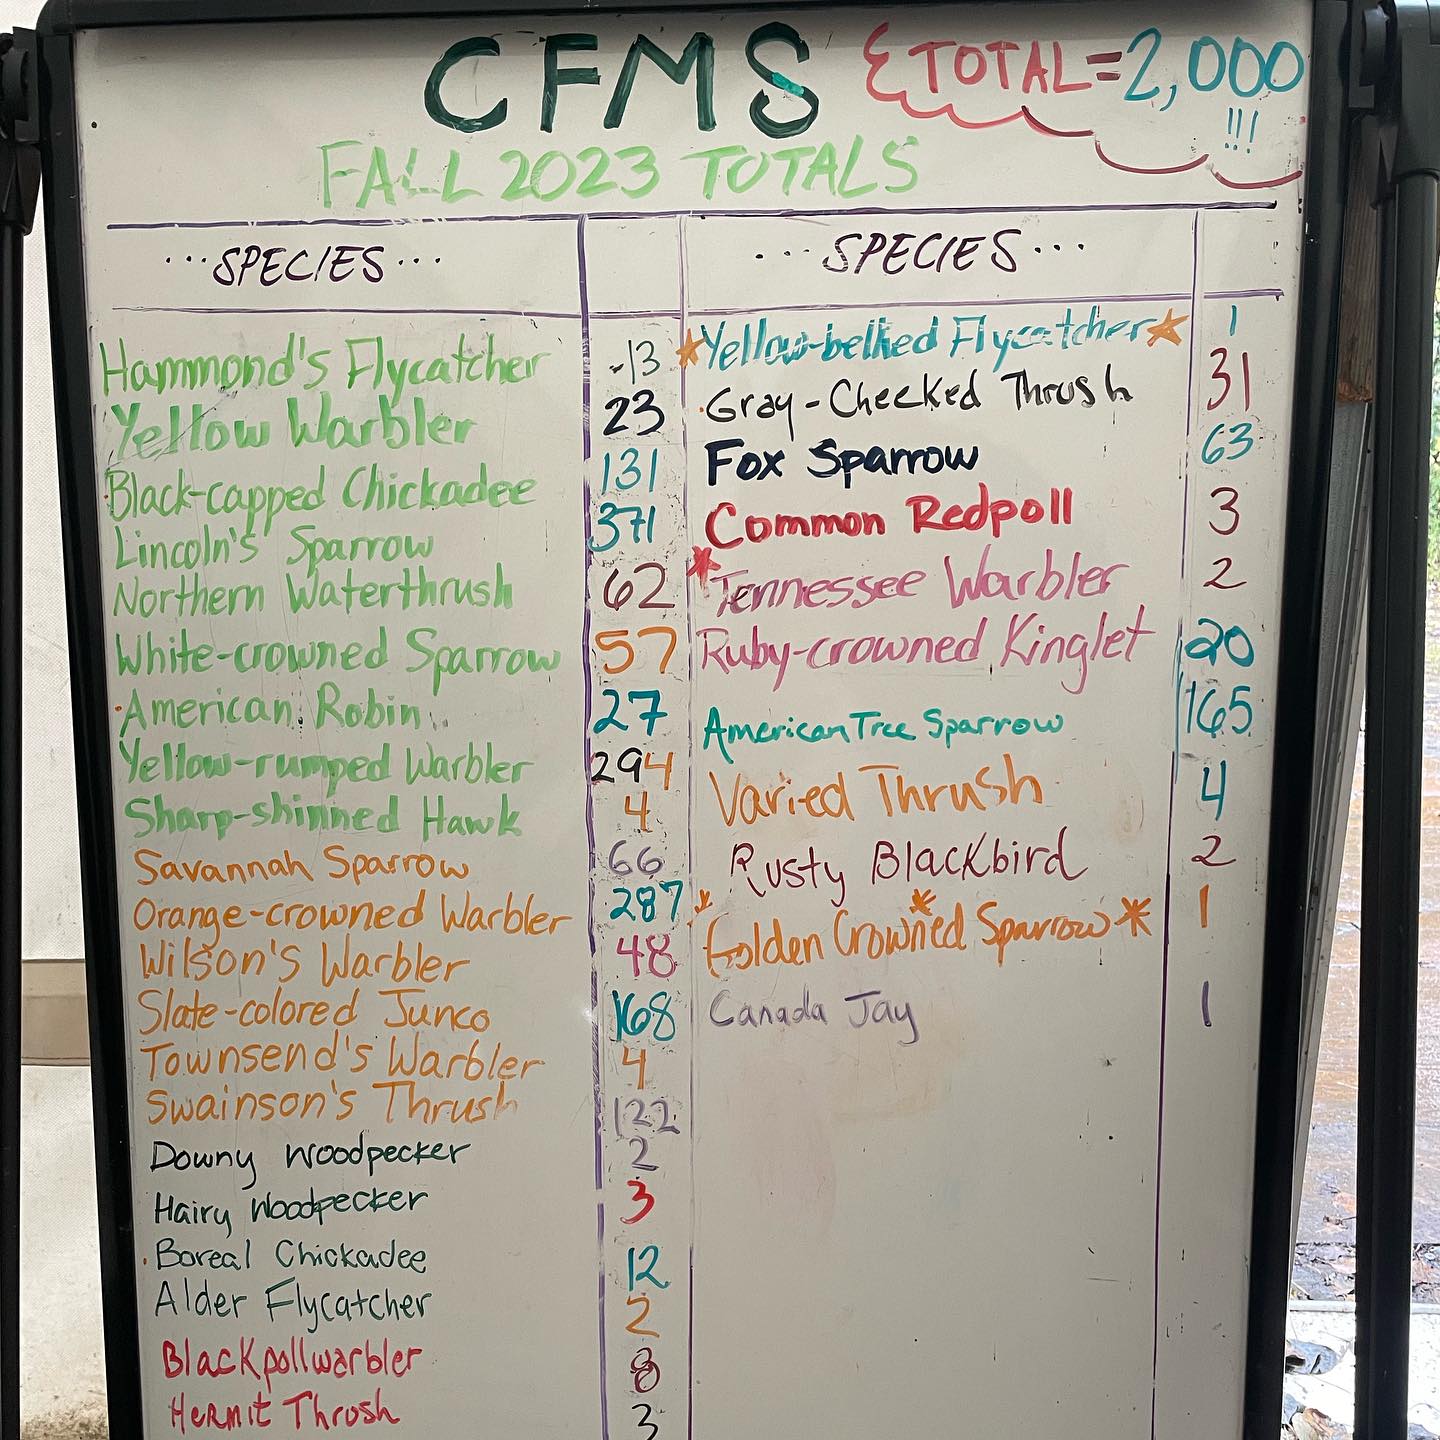 CFMS
{TOTAL=2,000
!!!
FALL 2023 TOTALS
...SPECIES...
Hammond's Flycatcher 13
Yellow Warbler 23
Black-capped Chickadee 131
Lincoln's Sparrow 371
Northern Waterthrush 62
White-crowned Sparrow 57
American Robin 27
Yellow-rumped Warbler 294
Sharp-shinned Hawk 4
Savannah Sparrow 66
Orange-crowned Warbler 287
Wilson's Warbler 48
Slate-colored Junco 168
Townsend's Warbler 4
Swainson's Thrush 122
Downy Woodpecker 2
Hairy Woodpecker 3
Boreal Chickadee 12
Alder Flycatcher 2
Blackpollwarbler 8
Hermit Thrush 3
...SPECIES...
*Yellow-bellied Flycatcher* 1
Gray-Cheeked Thrush 31
Fox Sparrow 63
Common Redpoll 3
*Tennessee Warbler 2
Ruby-crowned Kinglet 20
American Tree Sparrow 165
Varied Thrush 4
Rusty Blackbird 2
*Golden Crowned Sparrow* 1
Canada Jay 1